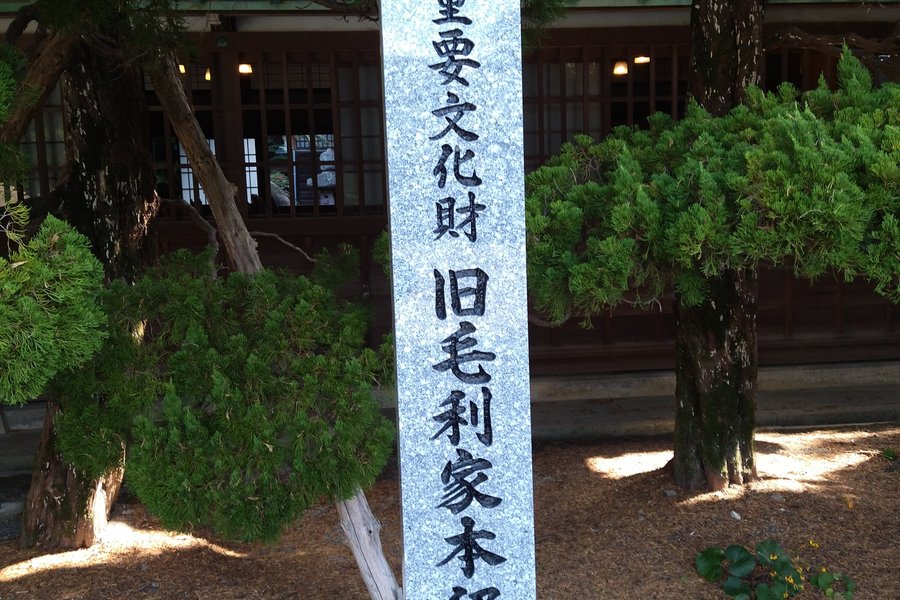 重要文化財 旧毛利家本邸